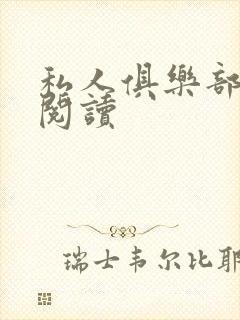 私人俱樂部
閱讀
瑞士韦尔比耶